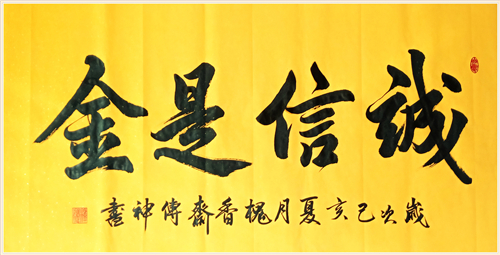 誠信是金
歲次己亥夏月槐香齋傳神書